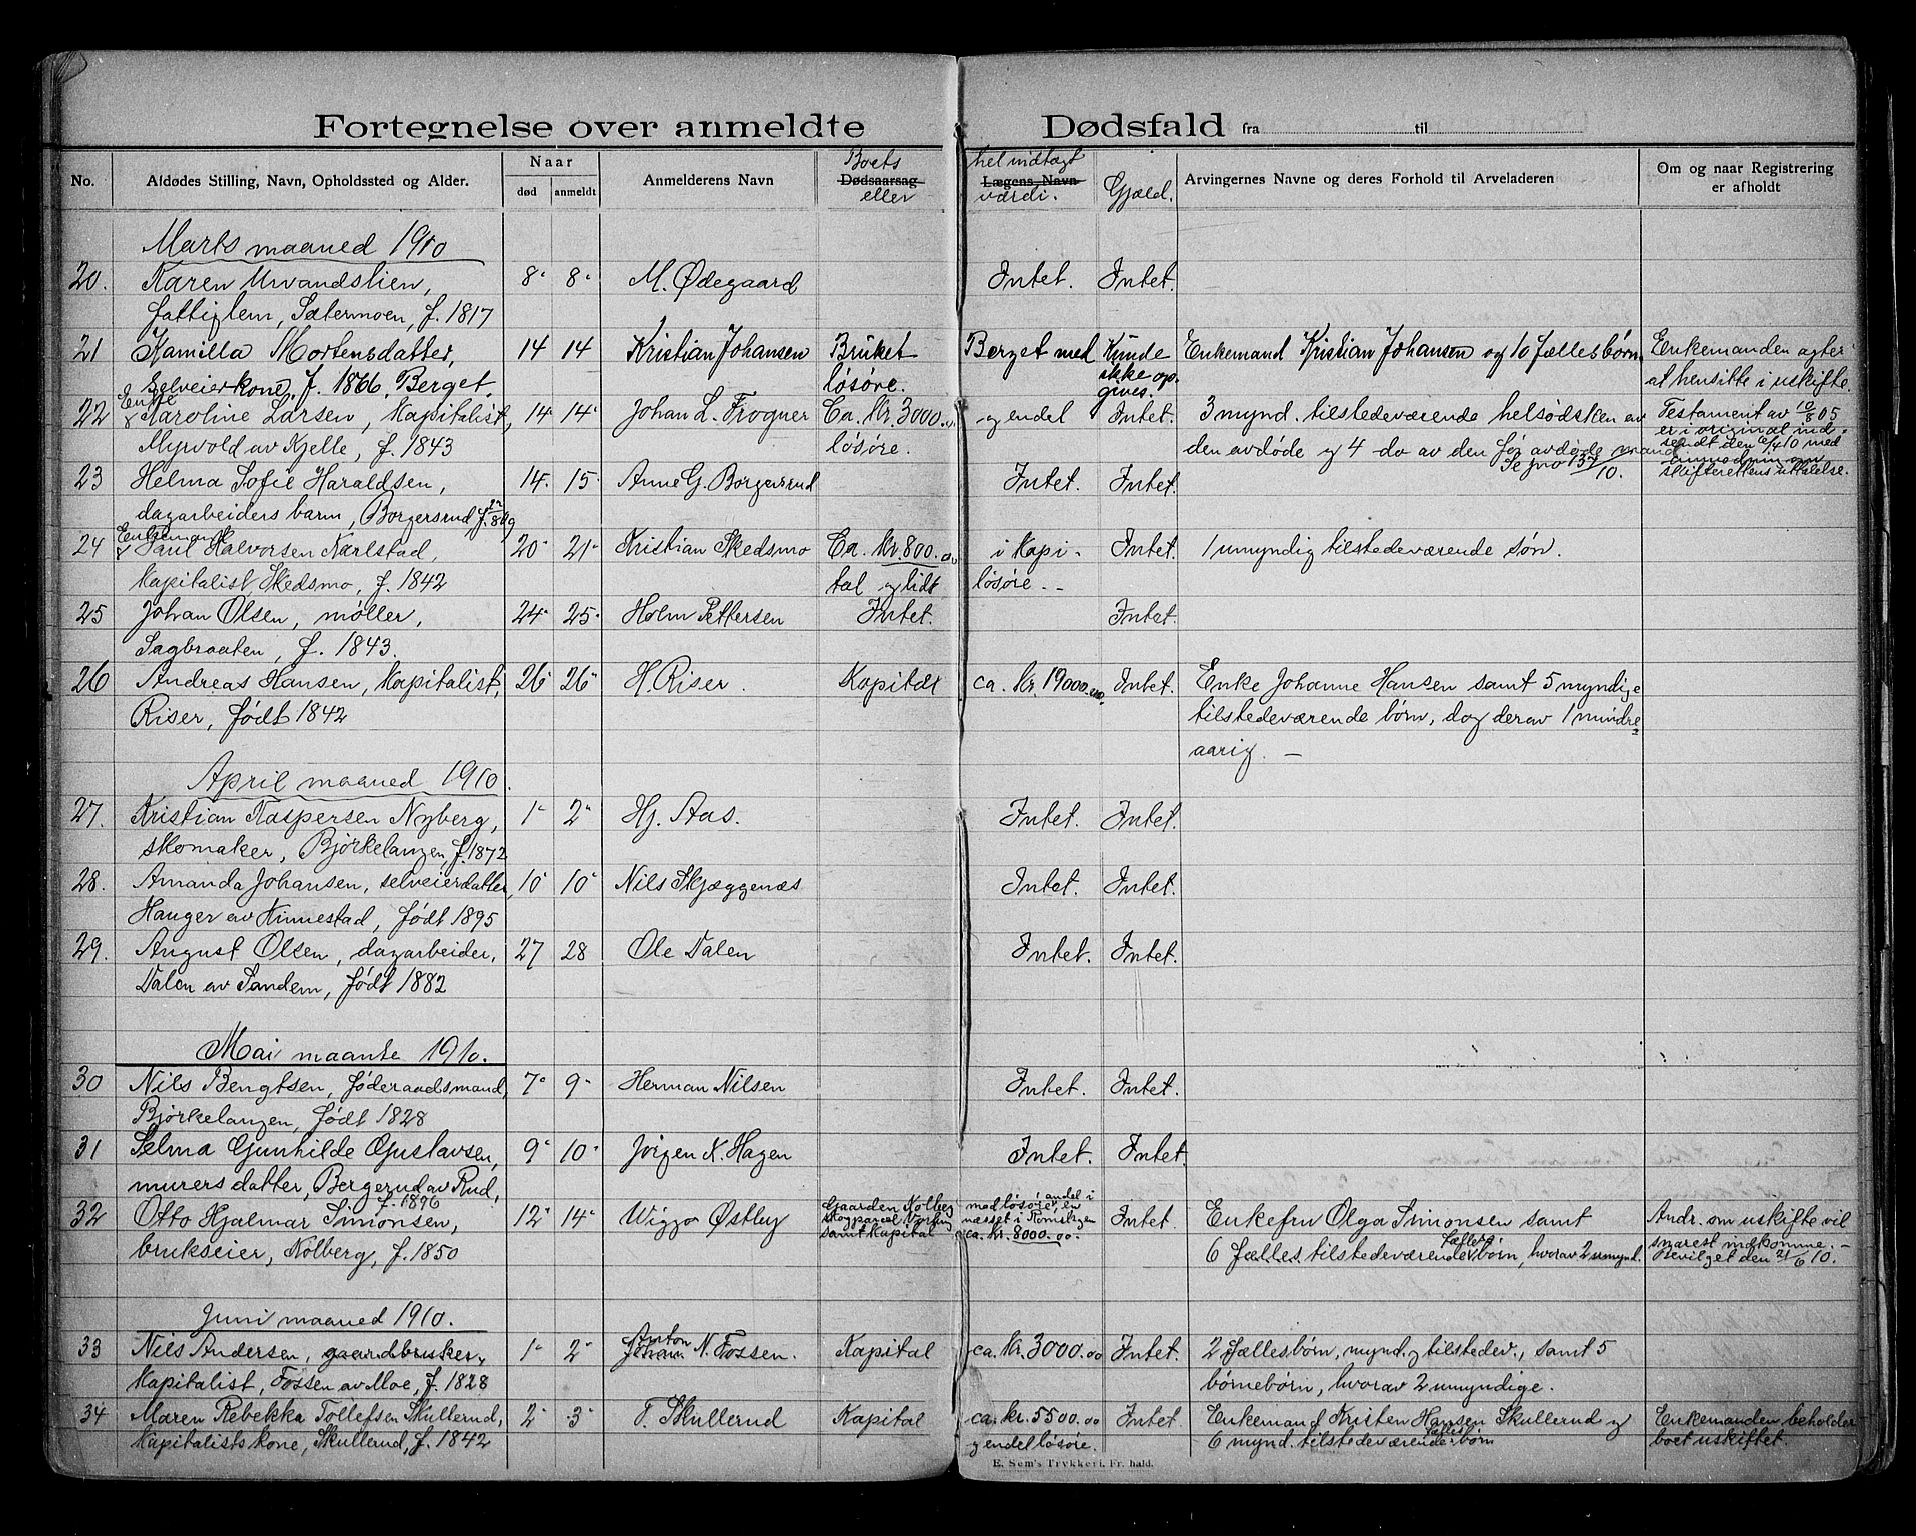 Fortegnelse over anmeldte Dødsfald fra til
No. Afdødes Stilling, Navn, Opholdssted og Alder. Naar død anmeldt Anmelderens Navn Boets Dødsaarsag eller hel indtægt Lægens Navn værdi. Gjæld. Arvingernes Navne og deres Forhold til Arveladeren Om og naar Registrering er afholdt
Marts maaned 1910
20. Karen Urvandslien, 8 8 M. Ødegaard Intet. Intet.
fattiglem, Sætermoen, f. 1817
21 Kamilla Mortensdatter, 14 14 Kristian Johansen Bruket Berget med Kunde Enkemand Kristian Johansen og 10 fællesbørn. Enkemanden agter
selveierkone, f. 1866, Berget. løsøre. ikke op- gives. at hensitte i uskifte.
22 Enke Karoline Larsen, Kapitalist, 14 14 Johan L. Frogner Ca. kr. 3000.00 og endel Intet. 3 mynd. tilstedeværende helsødsken av Testament av 10/8 05
er i original ind-
Myrvold av Kjelle, f. 1843 løsøre. den avdøde og 4 do av den før avdøde mand sendt den 6/4 10 med
Se no 137/10. anmodning om
skifterettens uttalelse.
23 Helma Sofie Haraldsen, 14. 15 Anne G. Borgersrud Intet. Intet.
dagarbeiders barn, Borgersrud f. 809
24 Enkemand Paul Halvorsen Karlstad, 20 21 Kristian Skedsmo Ca. kr 800.00 i Kapi- Intet. 1 umyndig tilstedeværende søn.
Kapitalist, Skedsmo, f. 1842 tal og lidt løsøre.-
25 Johan Olsen, møller, 24 25 Holm Pettersen Intet. Intet.
Sagbraaten, f. 1843.
26 Andreas Hansen, Kapitalist, 26 26 H. Riser. Kapital ca. kr 19000.00. Intet. Enke Johanne Hansen samt 5 myndige
Riser, født 1842 tilstedeværende børn, dog derav 1 mindre-
aarig. -
April maaned 1910.
27. Kristian Kaspersen Nyberg, 1 2 Hj. Aas. Intet. Intet.
skomaker, Bjørkelangen, f. 1872
28. Amanda Johansen, selveierdatter, 10 10 Nils Skjæggenæs Intet. Intet.
Hauger av Kinnestad, født 1895
29. August Olsen, dagarbeider, 27 28 Ole Dalen Intet. Intet.
Dalen av Sandem, født 1882
Mai maante 1910.
30 Nils Bengtsen, føderaadsmand, 7 9 Herman Nilsen Intet. Intet.
Bjørkelangen, født 1828
31 Selma Gunhilde Gustavsen, 9 10 Jörgen K. Hagen Intet. Intet.
murers datter, Bergerud av Rud,
f. 1896
32 Otto Hjalmar Simonsen, 12 14 Wiggo Østby Gaarden Kolberg med løsøre, andel i Intet. Enkefru Olga Simonsen samt Andr. om uskifte vil
skogparcel næsset i Romskogen snarest indkomme. -
samt kapital ca. kr. 8000.00.
brukseier, Kolberg, f. 1850 6 fælles tilstedeværende fælles børn, hvorav 2 umynd. Bevilget den 21/6 10.
Juni maaned 1910.
33 Nils Andersen, gaardbruker, 1 2 Anton Johan N. Fossen. Kapital ca. kr. 3000.00 Intet. 2 fællesbørn, mynd. og tilstedev., samt 5
Kapitalist, Fossen av Moe, f. 1828 børnebørn, hvorav 2 umyndige.
34 Maren Rebekka Tollefsen Skullerud, 2 3 T. Skullerud Kapital ca. kr. 5500.00 Intet. Enkemand Kristen Hansen Skullerud og Enkemanden beholder
Kapitalistskone, Skullerud, f. 1842 og endel løsøre. 6 mynd. tilstedeværende fælles børn boet uskiftet.
E. Sem's Trykkeri. Fr. hald.